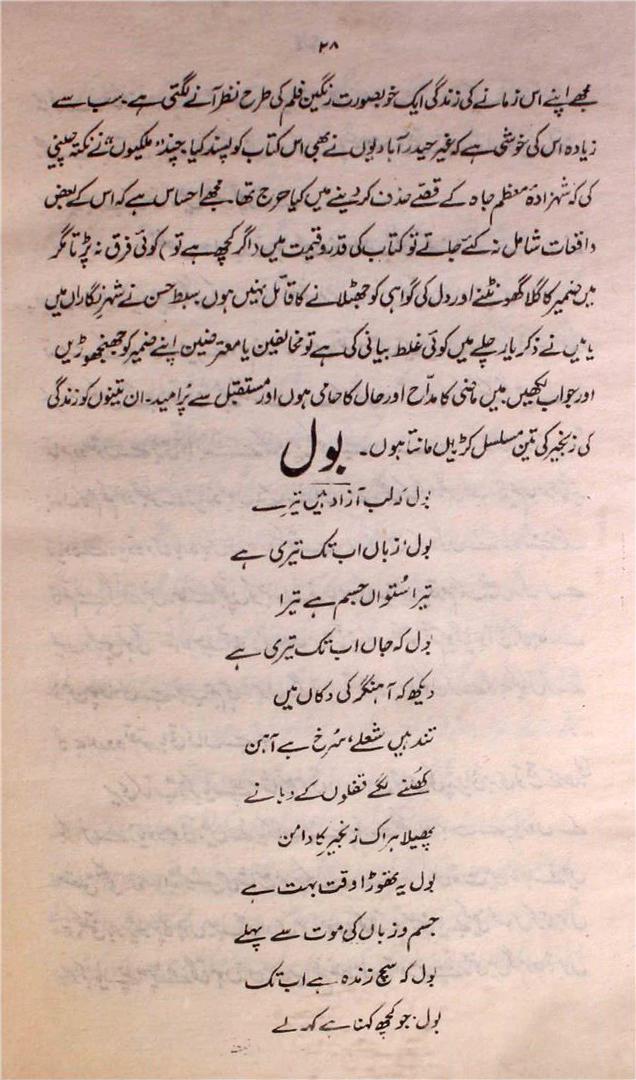 ۲۸
مجھے اپنے اس زمانے کی زندگی ایک خوبصورت رنگین فلم کی طرح نظر آنے لگتی ہے۔ سب سے
زیادہ اس کی خوشی ہے کہ غیر حیدرآبادیوں نے بھی اس کتاب کو پسند کیا۔ چند "ملکیوں" نے نکتہ چینی
کی کہ شہزادۂ معظم جاہ کے قصے حذف کر دینے میں کیا حرج تھا۔ مجھے احساس ہے کہ اس کے بعض
واقعات شامل نہ کئے جاتے تو کتاب کی قدر و قیمت میں (اگر کچھ ہے تو) کوئی فرق نہ پڑتا مگر
میں ضمیر کا گلا گھونٹنے اور دل کی گواہی کو جھٹلانے کا قائل نہیں ہوں سبط حسن نے شہر نگاراں میں
یا میں نے ذکر یار چلے میں کوئی غلط بیانی کی ہے تو مخالفین یا معترضین اپنے ضمیر کو جھنجھوڑیں
اور جواب لکھیں۔ میں ماضی کا مدّاح اور حال کا حامی ہوں اور مستقبل سے پُرامید۔ ان تینوں کو زندگی
کی زنجیر کی تین مسلسل کڑیاں مانتا ہوں۔
بول
بول کہ لب آزاد ہیں تیرے
بول، زباں اب تک تیری ہے
تیرا سُتواں جسم ہے تیرا
بول کہ جاں اب تک تیری ہے
دیکھ کہ آہنگر کی دکاں میں
تند ہیں شعلے، سُرخ ہے آہن
کھُلنے لگے قفلوں کے دہانے
پھیلا ہر اک زنجیر کا دامن
بول یہ تھوڑا وقت بہت ہے
جسم و زباں کی موت سے پہلے
بول کہ سچ زندہ ہے اب تک
بول، جو کچھ کہنا ہے کہہ لے